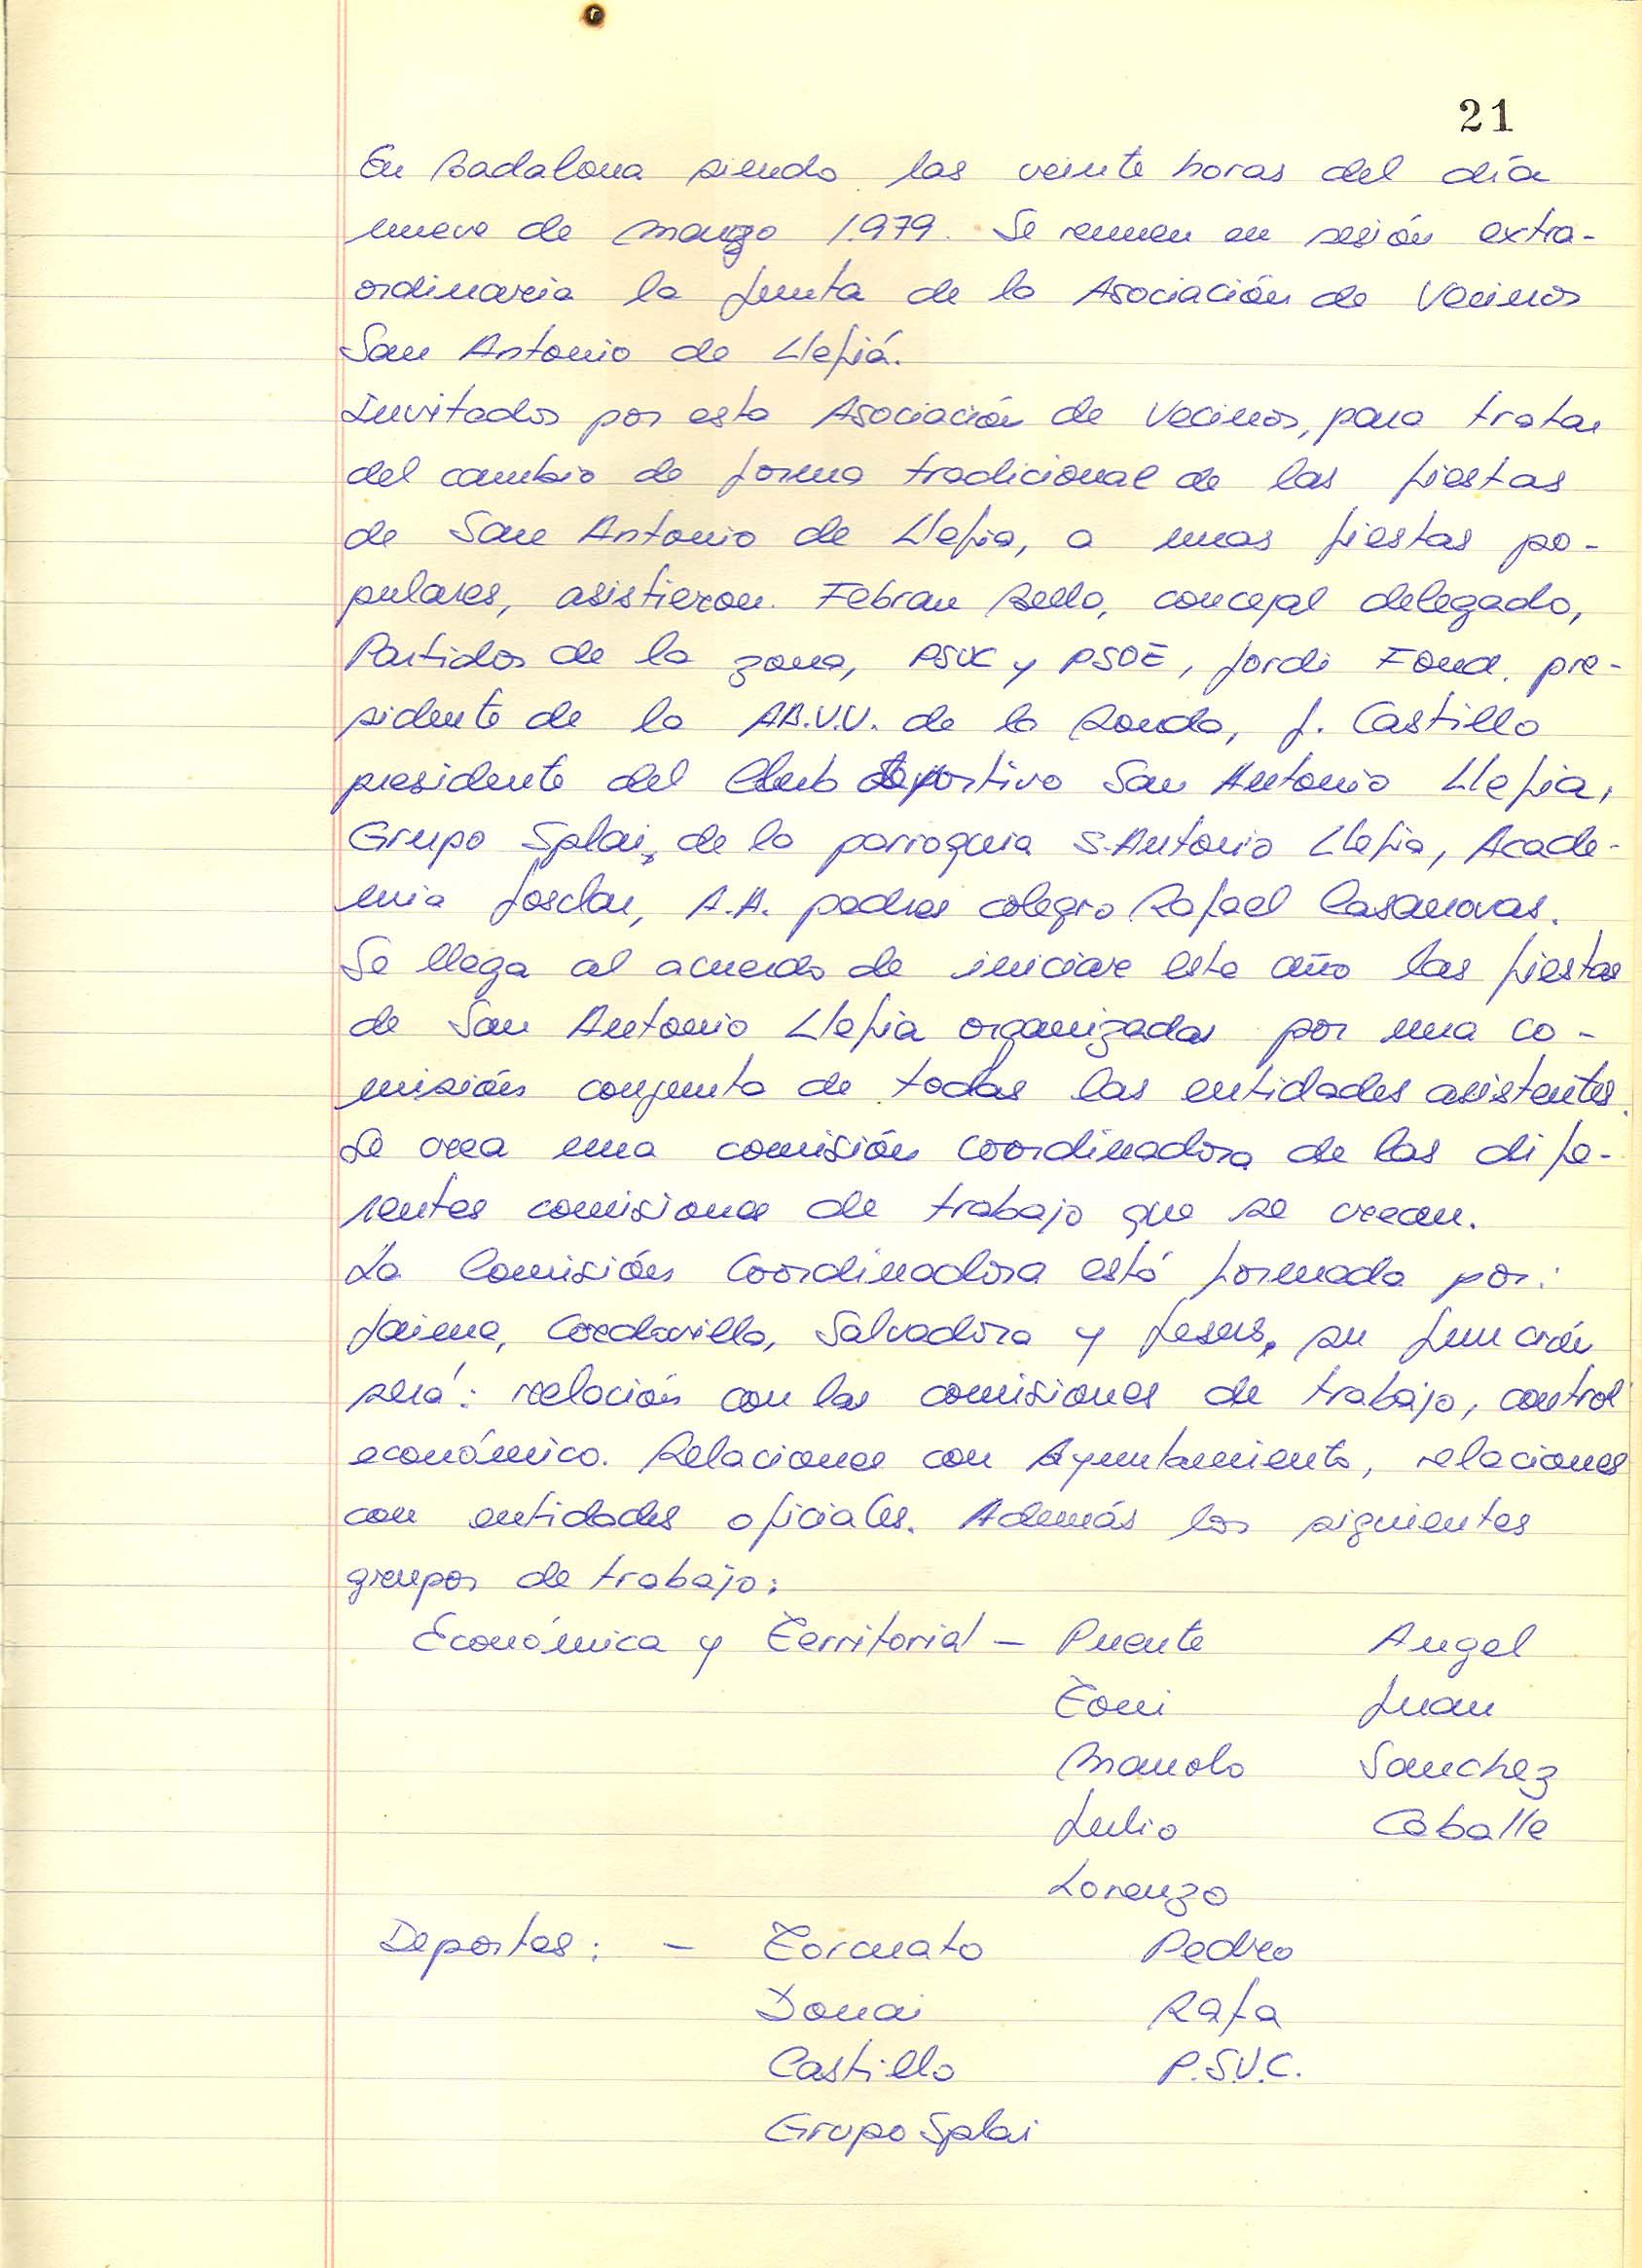 21
En Badalona siendo las veinte horas del día
nueve de marzo 1.979. Se reunen en sesión extra-
ordinaria la Junta de la Asociación de Vecinos
San Antonio de Llefiá.
Invitados por esta Asociación de Vecinos, para tratar
del cambio de forma tradicional de las fiestas
de San Antonio de Llefia, a unas fiestas po-
pulares, asistieron Febran Bello, concejal delegado,
Partidos de la zona, PSUC y PSOE, Jordi Fond. pre-
sidente de la AA.V.V. de la Ronda, J. Castillo
presidente del Club deportivo San Antonio Llefia,
Grupo Splai, de la parroquia S. Antonio Llefia, Acade-
mia Josclar, A.A. padres colegio Rafael Casanovas.
Se llega al acuerdo de iniciar este año las fiestas
de San Antonio Llefia organizadas por una co-
misión conjunta de todas las entidades asistentes.
Se crea una comisión coordinadora de las dife-
rentes comisiones de trabajo que se crean.
La Comisión Coordinadora está formada por:
Jaime, Cordovilla, Salvadora y Jesus, su función
será: relación con las comisiones de trabajo, control
económico. Relaciones con Ayuntamiento, relaciones
con entidades oficiales. Además los siguientes
grupos de trabajo:
Económica y Territorial - Puente Angel
Toni Juan
Manolo Sanchez
Julio Caballe
Lorenzo
Deportes: - Torcuato Pedro
Donai Rafa
Castillo P.S.U.C.
Grupo Splai